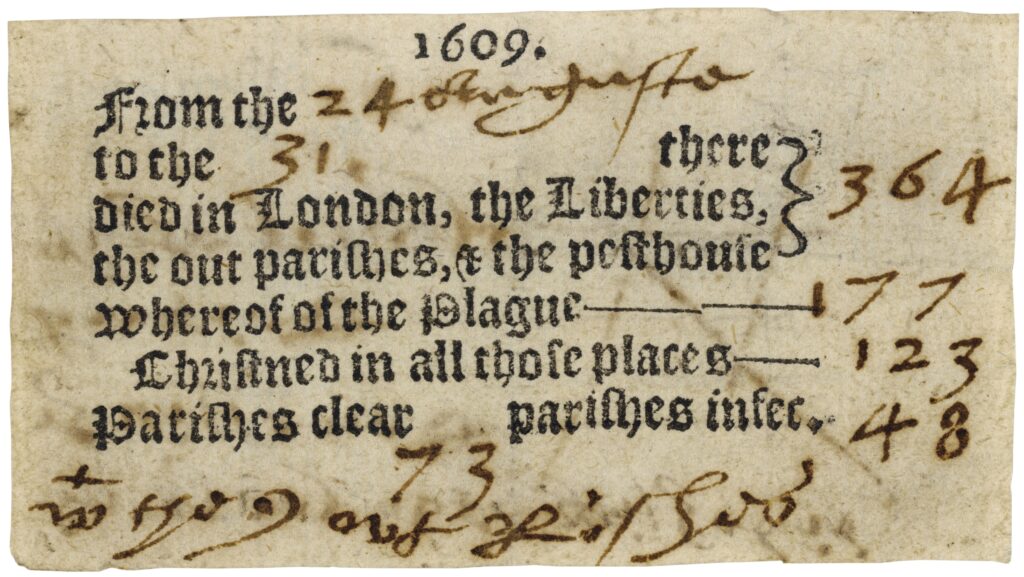 1609.
From the 24 Auguste
to the 31 there
died in London, the Liberties, 364
the out pariſhes, & the peſthouſe
whereof of the Plague 177
Chriſtned in all thoſe places 123
Pariſhes clear 73 pariſhes infec. 48
wt the 9 out pariſhes